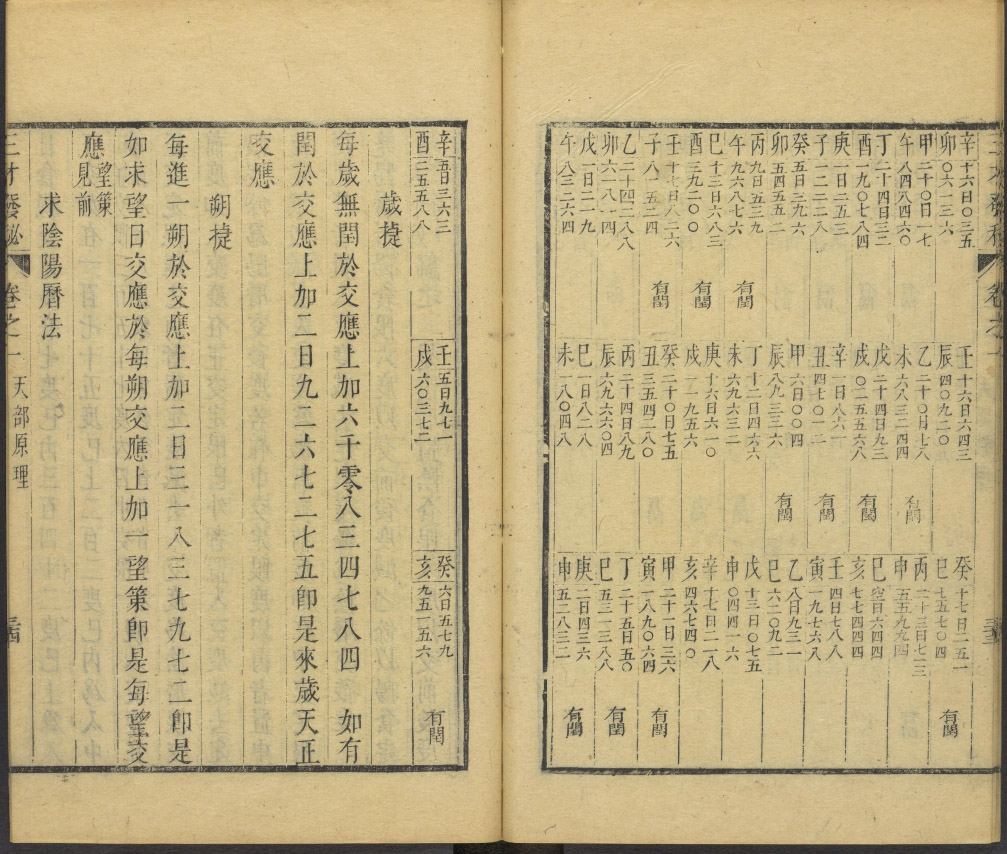 辛十六日〇三五
卯〇六一三六
壬十六日六四三
辰四〇九二〇
癸十七日二五一
巳七五七〇四
有閏
甲二十〇日一七
午八四八四六〇
乙二十〇月七八
未六八三二四四
有閏
丙二十三日七一三
申五五九九四
丁二十四日三二
酉一九〇七八四
戊二十四日九三
戌〇二五五六八
有閏
巳空日六四八
亥七七四四
庚一日二五三
子一二二二八
辛一日八六一
丑四七〇一二
有閏
壬四日八七八
寅一九七六八
癸五日三九六
卯五四五五
甲六日〇〇四
辰八九三三六
有閏
乙八日九三一
巳六二〇九二
丙九日五三九
午九六八六
有閏
丁十二日四六六
未六九六三二
戊十三日〇七五
申〇四四一六
巳十三日六八三
酉三九二〇〇
有閏
庚十六日六一〇
戌一一九五六
辛十七日二一八
亥四六七四〇
壬十七日八二六
子八一二四
有閏
癸二十〇日七五
丑三五四二八〇
甲二十一日三六
寅一八九〇六四
有閏
乙二十四二八八
卯六一八一四
丙二十四日八九
辰六九六六〇四
丁二十五日五〇
巳五三一三八八
有閏
戊一日二一九
午八三二六四
巳一日八二八
未一八〇四八
庚二日四三六
申五二八三二
有閏
辛五日三六三
酉二五五八八
壬五日九七一
戌六〇三七二
癸六日五七九
亥九五一五六
有閏
歲揵
每歲無閏於交應上加六千零八三四七八四 如有
閏於交應上加二日九二六七二七五卽是來歲天正
交應
朔揵
每進一朔於交應上加二日三一八三七九七二卽是
如求望日交應於每朔交應上加一望策卽是每望交
應望策見前
求陰陽曆法
三才發秘 卷之一 天部原理 三四